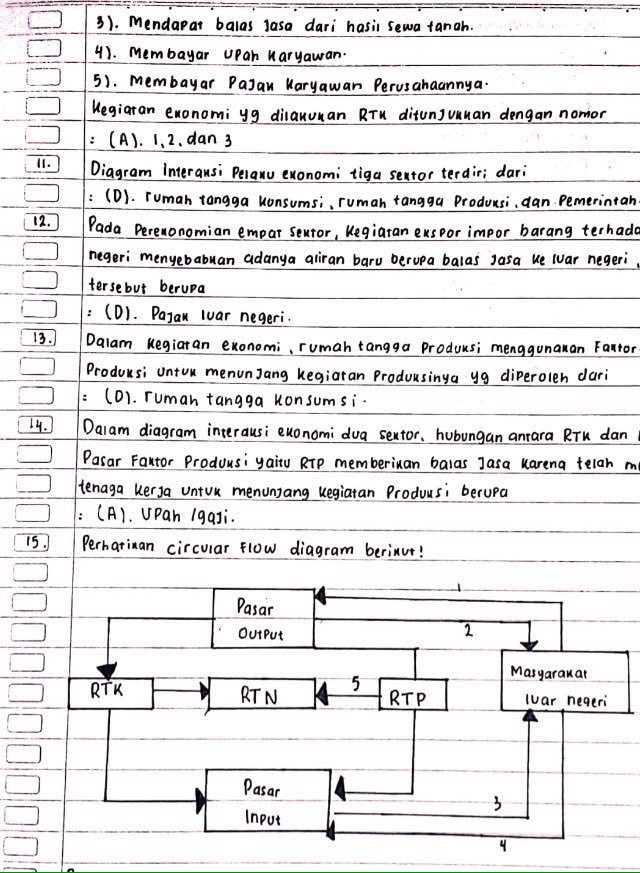 3). Mendapat balas jasa dari hasil sewa tanah.
4). Membayar upah karyawan.
5). Membayar Pajak karyawan Perusahaannya.
Kegiatan ekonomi yg dilakukan RTK ditunjukkan dengan nomor
: (A). 1, 2, dan 3
11. Diagram interaksi Pelaku ekonomi tiga sektor terdiri dari
: (D). rumah tangga konsumsi, rumah tangga Produksi, dan Pemerintah.
12. Pada Perekonomian empat sektor, kegiatan ekspor impor barang terhada
negeri menyebabkan adanya aliran baru berupa balas jasa ke luar negeri,
tersebut berupa
: (D). Pajak luar negeri.
13. Dalam kegiatan ekonomi, rumah tangga Produksi menggunakan Faktor
Produksi untuk menunjang kegiatan Produksinya yg diperoleh dari
: (D). rumah tangga konsumsi.
14. Dalam diagram interaksi ekonomi dua sektor, hubungan antara RTK dan
Pasar Faktor Produksi yaitu RTP memberikan balas jasa karena telah m
tenaga kerja untuk menunjang kegiatan Produksi berupa
: (A). Upah /gaji.
15. Perhatikan circular Flow diagram berikut!
1
Pasar
Output
2
RTK
RTN
5
RTP
Masyarakat
luar negeri
Pasar
Input
3
4